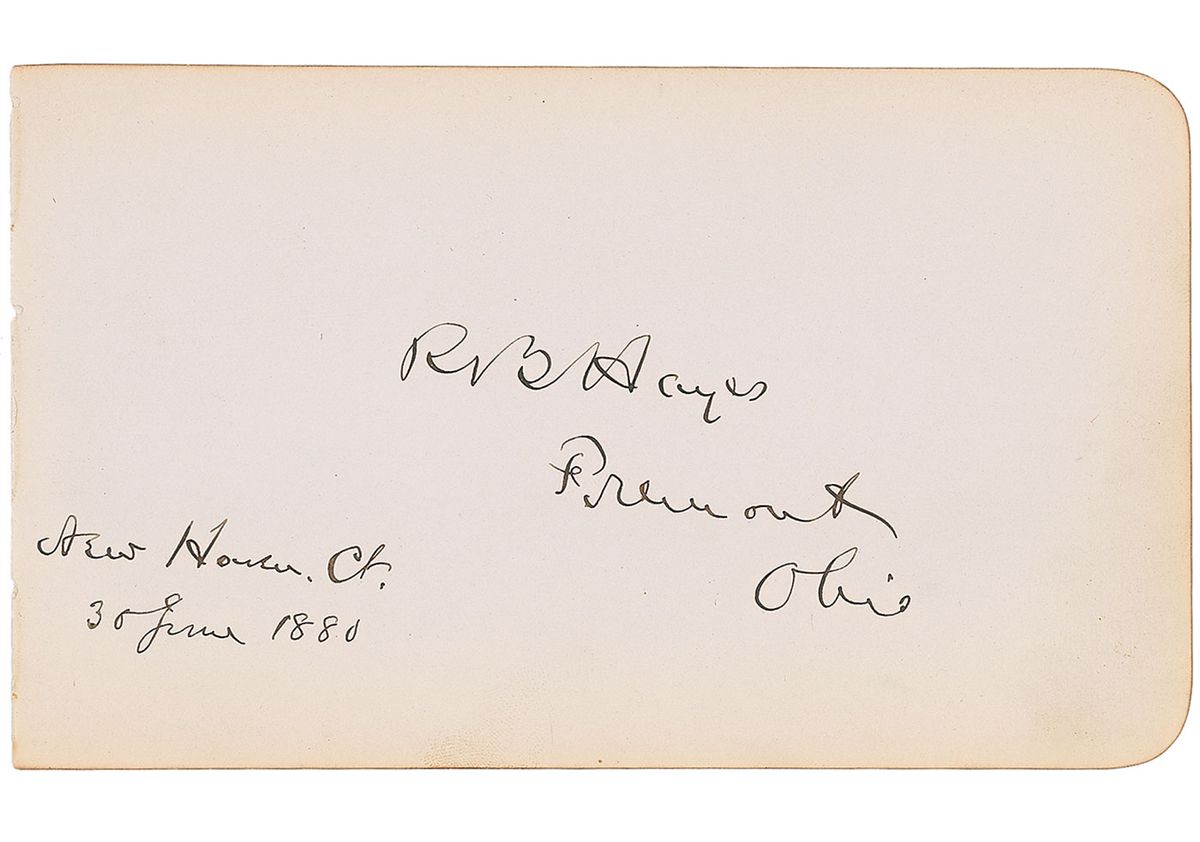 R B Hayes
Fremont
Ohio
New Haven. Ct.
30 June 1880